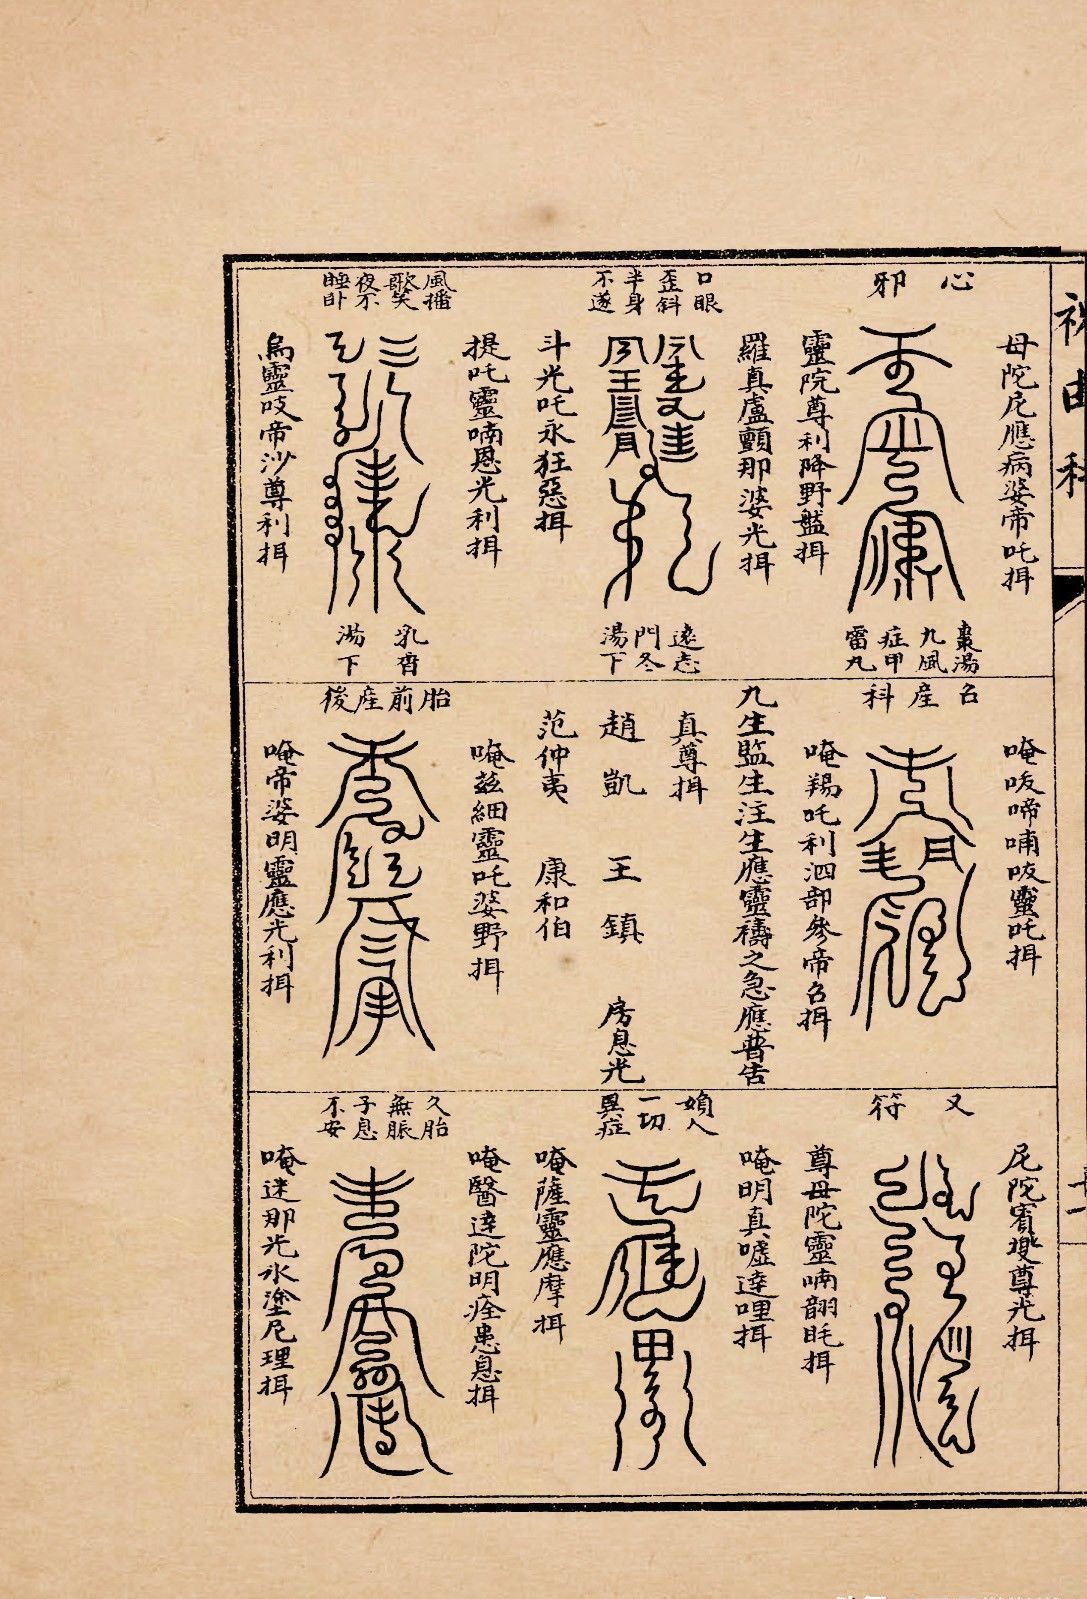 祝由科
心邪
母陀尼應病婆帝吒揖
靈院尊利降野盤揖
棗湯
九風
症甲
雷九
口眼
歪斜
半身
不遂
羅真盧顫那婆光揖
斗光吒永狂惡揖
遠志
門冬
湯下
風播
歌笑
夜不
睡卧
提吒靈喃恩光利揖
烏靈吱帝沙尊利揖
乳香
湯下
名產科
唵吱啼喃吱靈吒揖
唵羯吒利泗部參帝名揖
九生監生注生應靈禱之急應普告
真尊揖
趙凱 王鎮 房息光
范仲夷 康和伯
胎前產後
唵茲細靈吒婆野揖
唵帝婆明靈應光利揖
又符
尼陀尊光揖
尊母陀靈喃翮眊揖
婦人
一切
異症
唵明真噓達哩揖
唵薩靈應摩揖
久胎
無脹
子息
不安
唵醫達陀明痊患息揖
唵迷那光水塗尼理揖